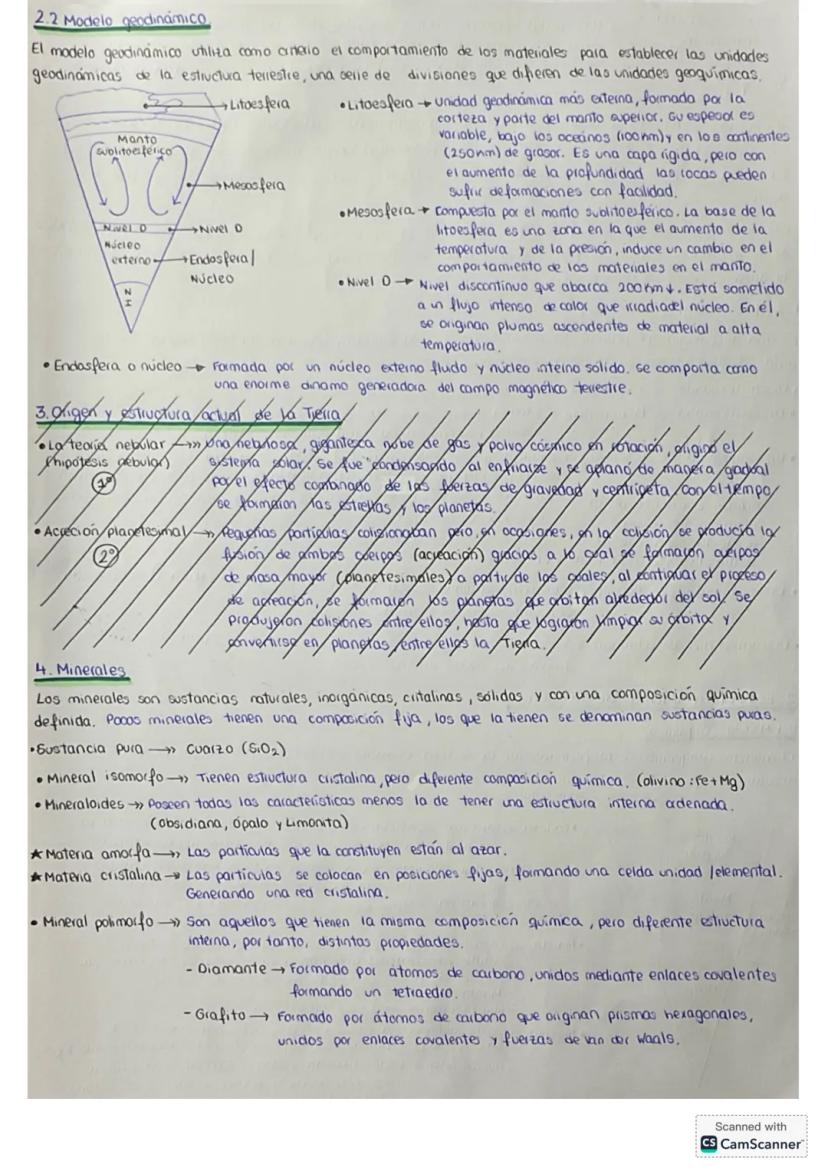 2.2 Modelo geodinámico.
El modelo geodinámico utiliza como criterio el comportamiento de los materiales para establecer las unidades
geodinámicas de la estructura terrestre, una serie de divisiones que difieren de las unidades geoquímicas.
Litoesfera
Manto
sublitoesférico
Mesosfera
Nivel D
Nivel D
Núcleo
externo
Endosfera/
Núcleo
N
I
• Litoesfera → Unidad geodinámica más externa, formada por la
corteza y parte del manto superior. Su espesor es
variable, bajo los océanos (100km) y en los continentes
(250km) de grosor. Es una capa rígida, pero con
el aumento de la profundidad las rocas pueden
sufrir deformaciones con facilidad.
• Mesosfera → Compuesta por el manto sublitoesférico. La base de la
litoesfera es una zona en la que el aumento de la
temperatura y de la presión, induce un cambio en el
comportamiento de los materiales en el manto.
• Nivel D → Nivel discontinuo que abarca 200km ↓. Está sometido
a un flujo intenso de calor que irradia del núcleo. En él,
se originan plumas ascendentes de material a alta
temperatura.
• Endosfera o núcleo → Formada por un núcleo externo fluido y núcleo interno sólido. Se comporta como
una enorme dinamo generadora del campo magnético terrestre.
3. Origen y estructura actual de la Tierra
• La teoría nebular →» Una nebulosa, gigantesca nube de gas y polvo cósmico en rotación, originó el
(hipótesis nebular) sistema solar. Se fue condensando al enfriarse y se aplanó de manera gradual
1º por el efecto combinado de las fuerzas de gravedad y centrípeta, con el tiempo,
se formaron las estrellas y los planetas.
• Acreción planetesimal →» Pequeñas partículas colisionaban pero, en ocasiones, en la colisión se producía la
2º fusión de ambos cuerpos (acreación) gracias a lo cual se formaron cuerpos
de masa mayor (planetesimales) a partir de los cuales, al continuar el proceso
de acreación, se formaron los planetas que orbitan alrededor del sol. Se
produjeron colisiones entre ellos, hasta que lograron limpiar su órbita y
convertirse en planetas, entre ellos la Tierra.
4. Minerales
Los minerales son sustancias naturales, inorgánicas, cristalinas, sólidas y con una composición química
definida. Pocos minerales tienen una composición fija, los que la tienen se denominan sustancias puras.
• Sustancia pura →» Cuarzo (SiO₂)
• Mineral isomorfo →» Tienen estructura cristalina, pero diferente composición química. (olivino: Fe + Mg)
• Mineraloides →» Poseen todas las características menos la de tener una estructura interna ordenada.
(Obsidiana, ópalo y Limonita)
★ Materia amorfa →» Las partículas que la constituyen están al azar.
★ Materia cristalina →» Las partículas se colocan en posiciones fijas, formando una celda unidad / elemental.
Generando una red cristalina.
• Mineral polimorfo →» Son aquellos que tienen la misma composición química, pero diferente estructura
interna, por tanto, distintas propiedades.
- Diamante → Formado por átomos de carbono, unidos mediante enlaces covalentes
formando un tetraedro.
- Grafito → Formado por átomos de carbono que originan prismas hexagonales,
unidos por enlaces covalentes y fuerzas de Van der Waals.
Scanned with
CS CamScanner